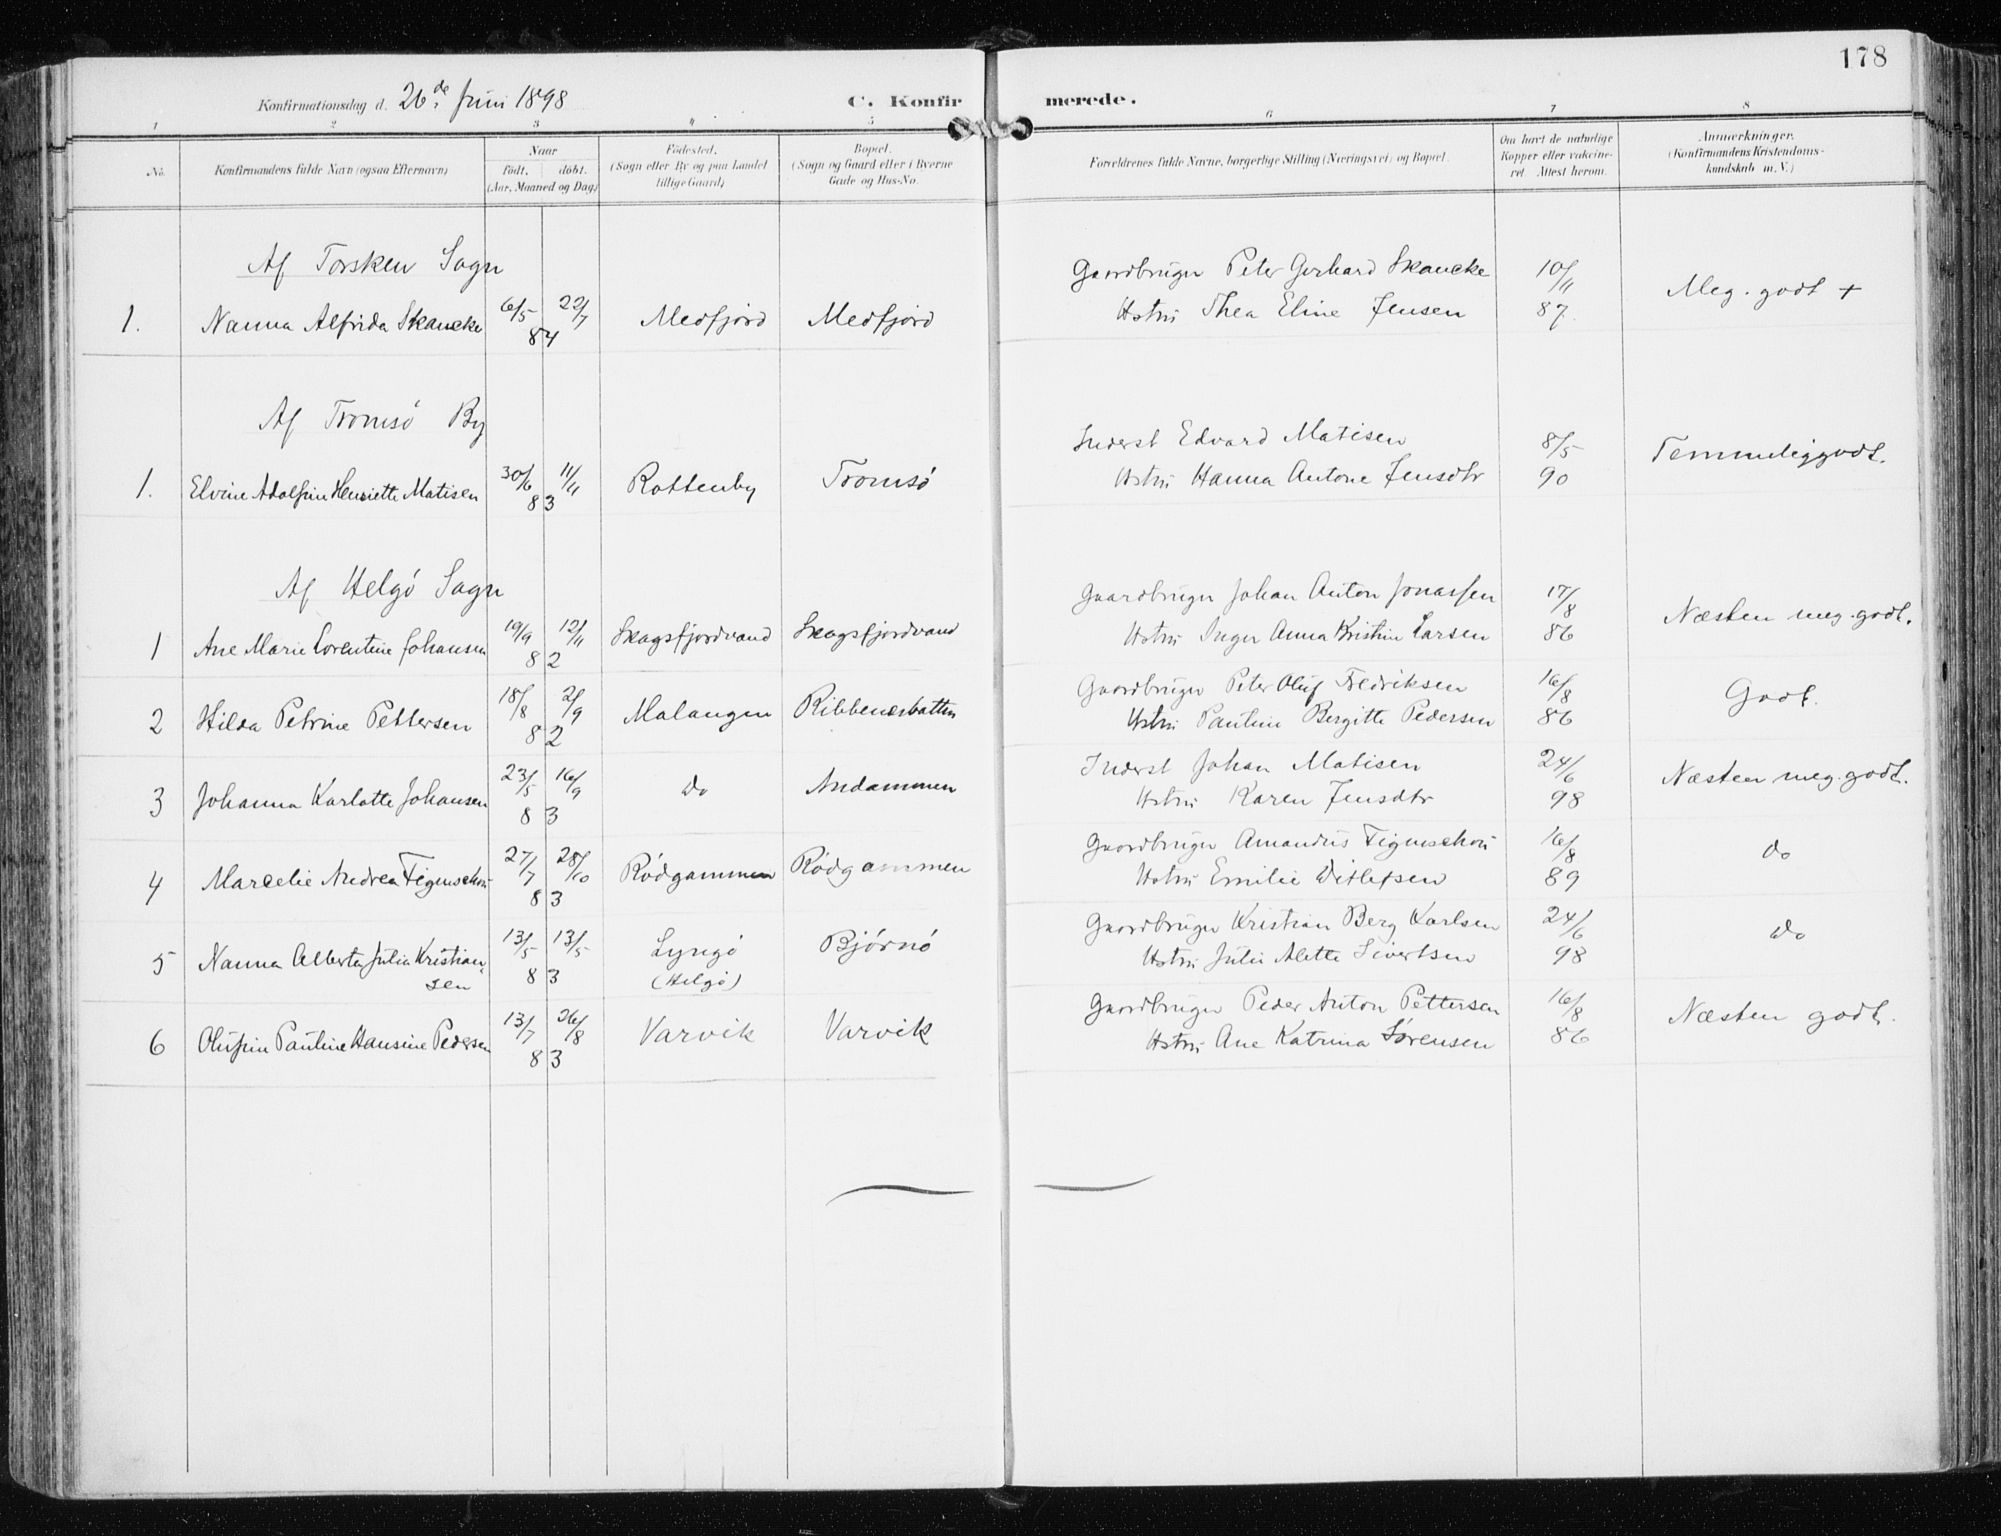 178
Konfirmationsdag d. 26de Juni 1898
C. Konfirmerede.
1 2 3 4 5 6 7 8
No. Konfirmandens fulde Navn (ogsaa Efternavn) Naar födt. döbt. (Aar, Maaned og Dag) Födested. (Sogn eller By og paa Landet tillige Gaard) Bopæl. (Sogn og Gaard eller i Byerne Gade og Hus-No. Forældrenes fulde Navne, borgerlige Stilling (Næringsvei) og Bopæl. Om havt de naturlige Kopper eller vakcineret Attest herom. Anmærkninger. (Konfirmandens Kristendomskundskab m.V.)
Af Torsken Sogn
1. Nanna Alfrida Skancke 6/5 22/7 84 Medfjord Medfjord Gaardbruger Peter Gerhard Skancke 10/11 Meg. godt +
Hstru Thea Eline Jensen 87.
Af Tromsö By
1. Elvine Adolfine Henriette Matisen 30/6 11/11 83 Rottenby Tromsö Inderst Edvard Matisen 8/5 Temmelig godt.
Hstru Hanna Antone Jensdtr 90
Af Helgö Sogn
1 Ane Marie Lorentine Johansen 19/9 12/11 82 Skogsfjordvand Skogsfjordvand Gaardbruger Johan Anton Jonassen 17/8 Næsten meg. godt.
Hstru Inger Anna Kristine Larsen 86
2 Hilda Petrine Pettersen 18/8 2/9 82 Malangen Ribbenesbotten Gaardbruger Peter Oluf Fredriksen 16/8 Godt.
Hstru Pauline Bergitte Pedersen 86
3 Johanna Karlotte Johansen 23/5 16/9 83 do Andammen Inderst Johan Matisen 24/6 Næsten meg. godt.
Hstru Karen Jensdtr 98
4 Marcelie Andrea Figenschou 27/7 28/10 83 Rödgammen Rödgammen Gaardbruger Amandus Figenschou 16/8 do
Hstru Emilie Ditlefsen 89
5 Nanna Alberta Julia Kristiansen 13/5 13/5 83 Lyngö (Helgö) Bjórnö Gaardbruger Kristian Berg Karlsen 24/6 do
Hstru Julie Alette Sivertsen 98
6 Olufine Pauline Hansine Pedersen 13/7 26/8 83 Varvik Varvik Gaardbruger Peder Anton Pettersen 16/8 Næsten godt.
Hstru Ane Katrina Sörensen 86